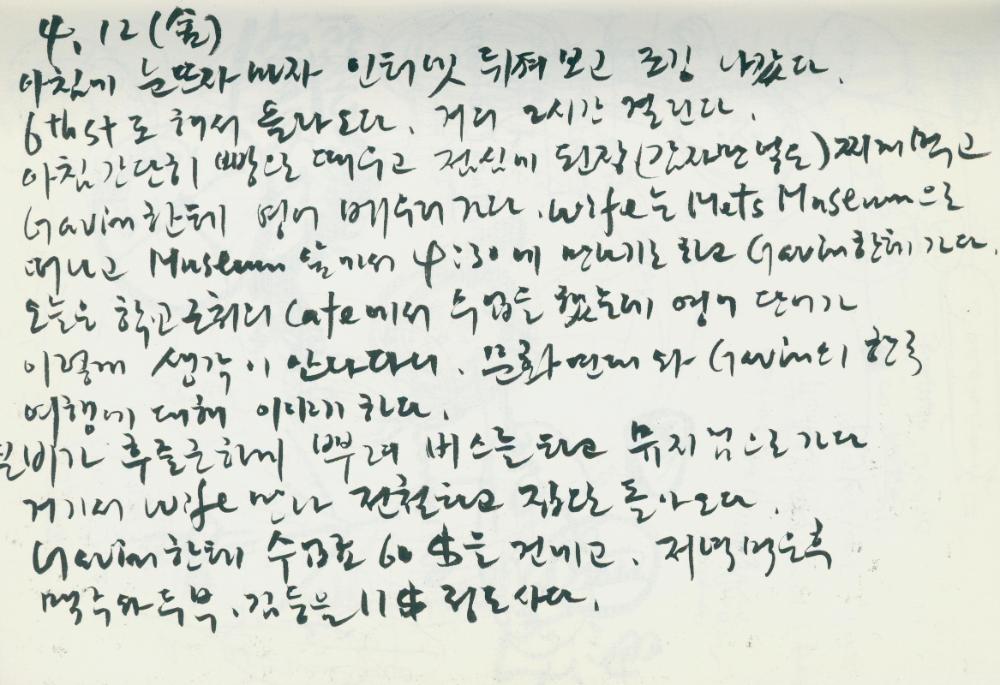 4. 12 (金)
아침에 눈뜨자 마자 인터넷 뒤져보고 조깅 나갔다.
6th st로 해서 돌아오다. 거의 2시간 걸린다.
아침 간단히 빵으로 때우고 점심에 된장(감자만 넣은)찌개 먹고
Gavin한테 영어 배우러 가다. wife는 Mets Museum으로
떠나고 Museum 앞에서 4:30에 만나기로 하고 Gavin한테 가다.
오늘은 학교 근처의 Cafe에서 수업을 했는데 영어 단어가
이렇게 생각이 안나다니. 문화면에 와 Gavin의 한국
여행에 대해 이야기 하다.
비가 후줄근하게 뿌려 버스를 타고 뮤지엄으로 가다
거기서 wife 만나 전철타고 집으로 돌아오다.
Gavin한테 수업료 60$을 건네고. 저녁 먹은 후
맥주와 두부, 김 등을 11$ 정도 사다.